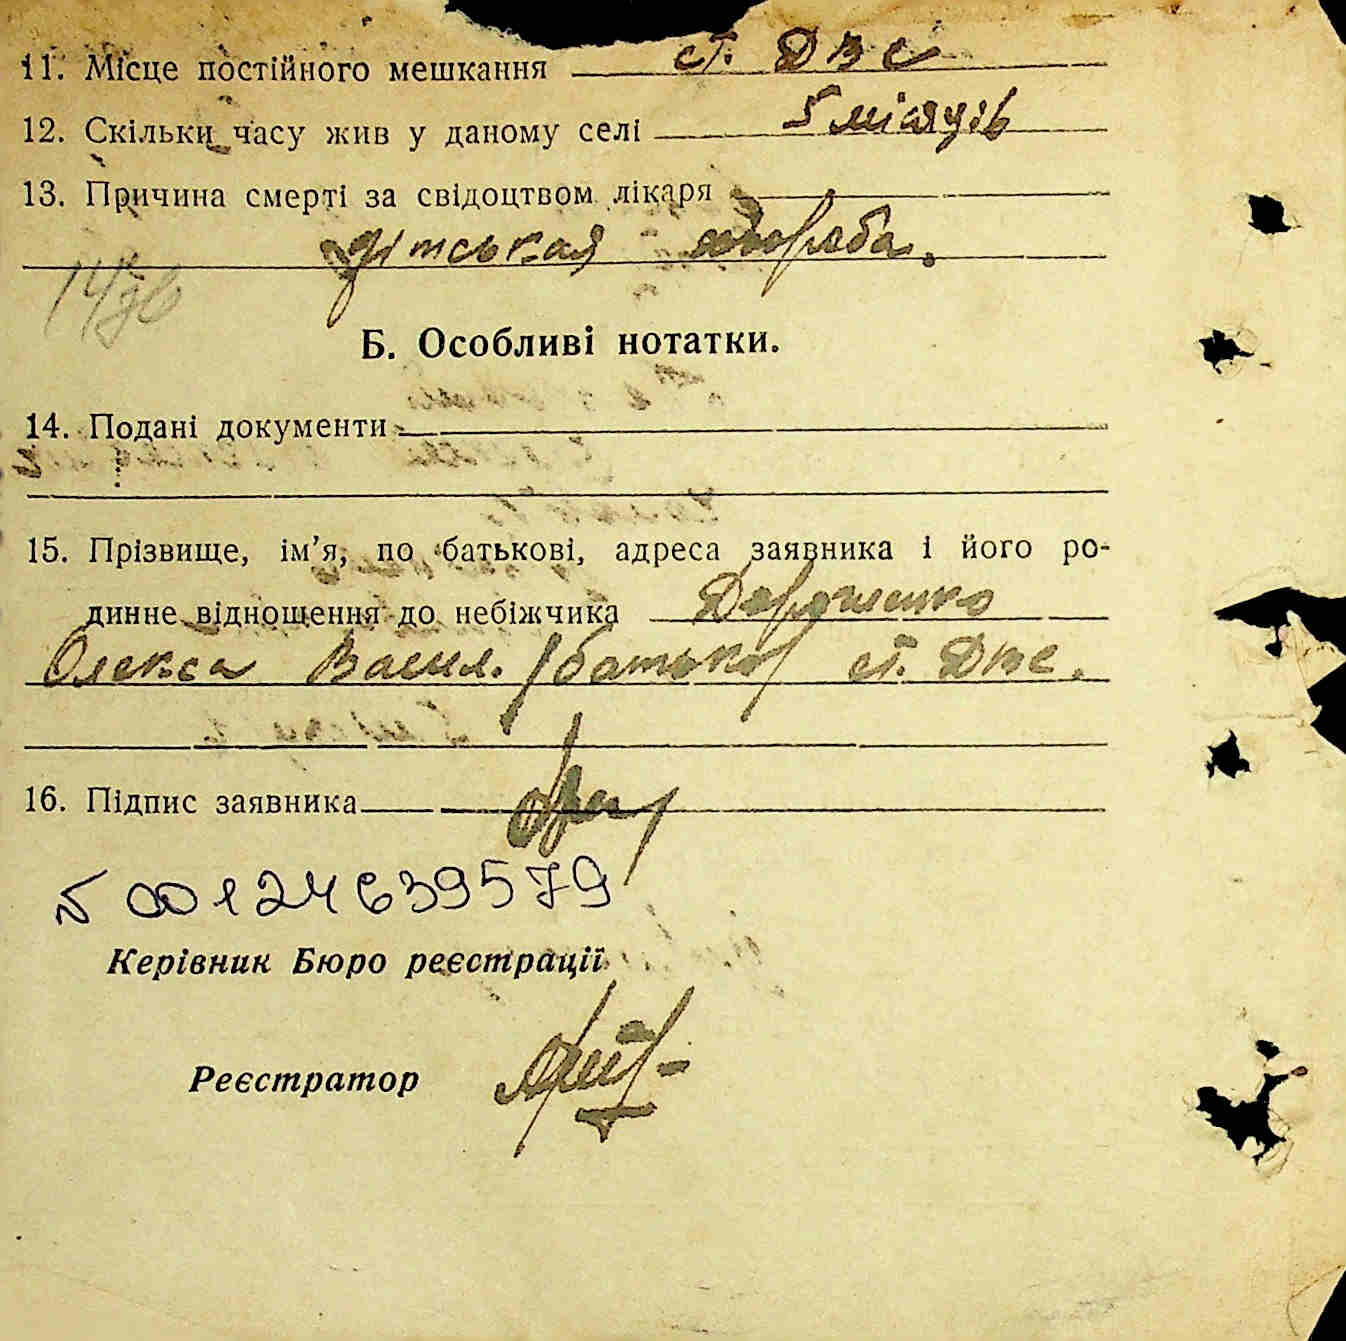 11. Місце постійного мешкання ст. Двс
12. Скільки часу жив у даному селі 5 місяців
13. Причина смерті за свідоцтвом лікаря
дітськая хвороба.
Б. Особливі нотатки.
14. Подані документи
15. Прізвище, ім’я, по батькові, адреса заявника і його ро-
динне відношення до небіжчика Дорошенко
Олекса Васил. (батько) ст. Двс.
16. Підпис заявника
№ 00124639579
Керівник Бюро реєстрації
Реєстратор